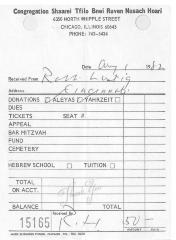 Congregation Shaarei Tfilo Bnei Ruven Nusach Hoari
6350 NORTH WHIPPLE STREET
CHICAGO, ILLINOIS 60645
PHONE: 743-5434
Date Aug 1 1982
Received From
Address Cincinnati
DONATIONS ALEYAS YAHRZEIT
DUES
TICKETS SEAT #
APPEAL
BAR MITZVAH
FUND
CEMETERY
HEBREW SCHOOL TUITION
TOTAL
ON ACCT.
Thank You
BALANCE TOTAL
15165 Received By K.L. 50-